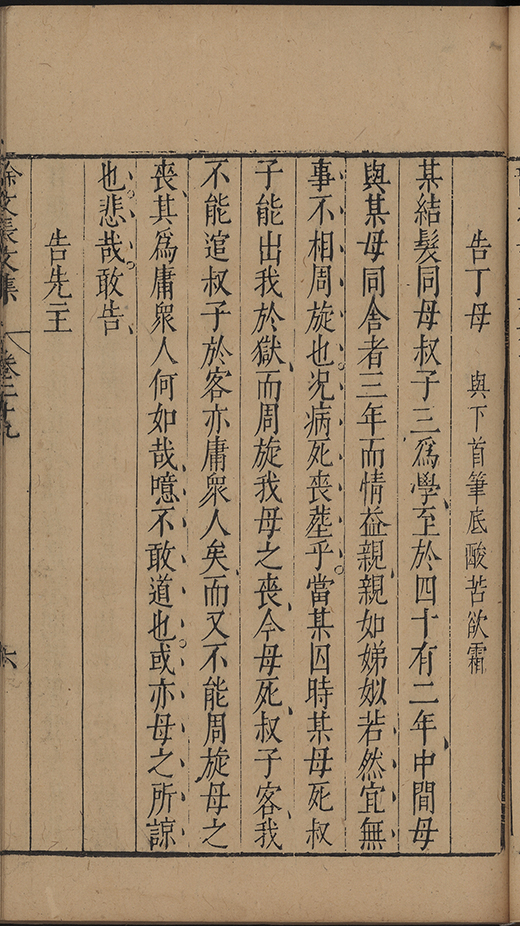 告丁母　與下首筆底酸苦欲霜
某結髮同母叔子三爲學、至於四十有二年、中間母
與某母同舍者三年而情益親、親如娣姒若然宜無
事不相周旋也。况病死喪塟乎。當某囚時某母死叔
子能出我於獄、而周旋我母之喪、今母死、叔子客、我
不能逭叔子於客亦庸衆人矣、而又不能周旋母之
喪、其爲庸衆人何如哉、噫不敢道也。或亦母之所諒
也。悲哉。敢告、
告先主
徐文長文集　卷二十九　六